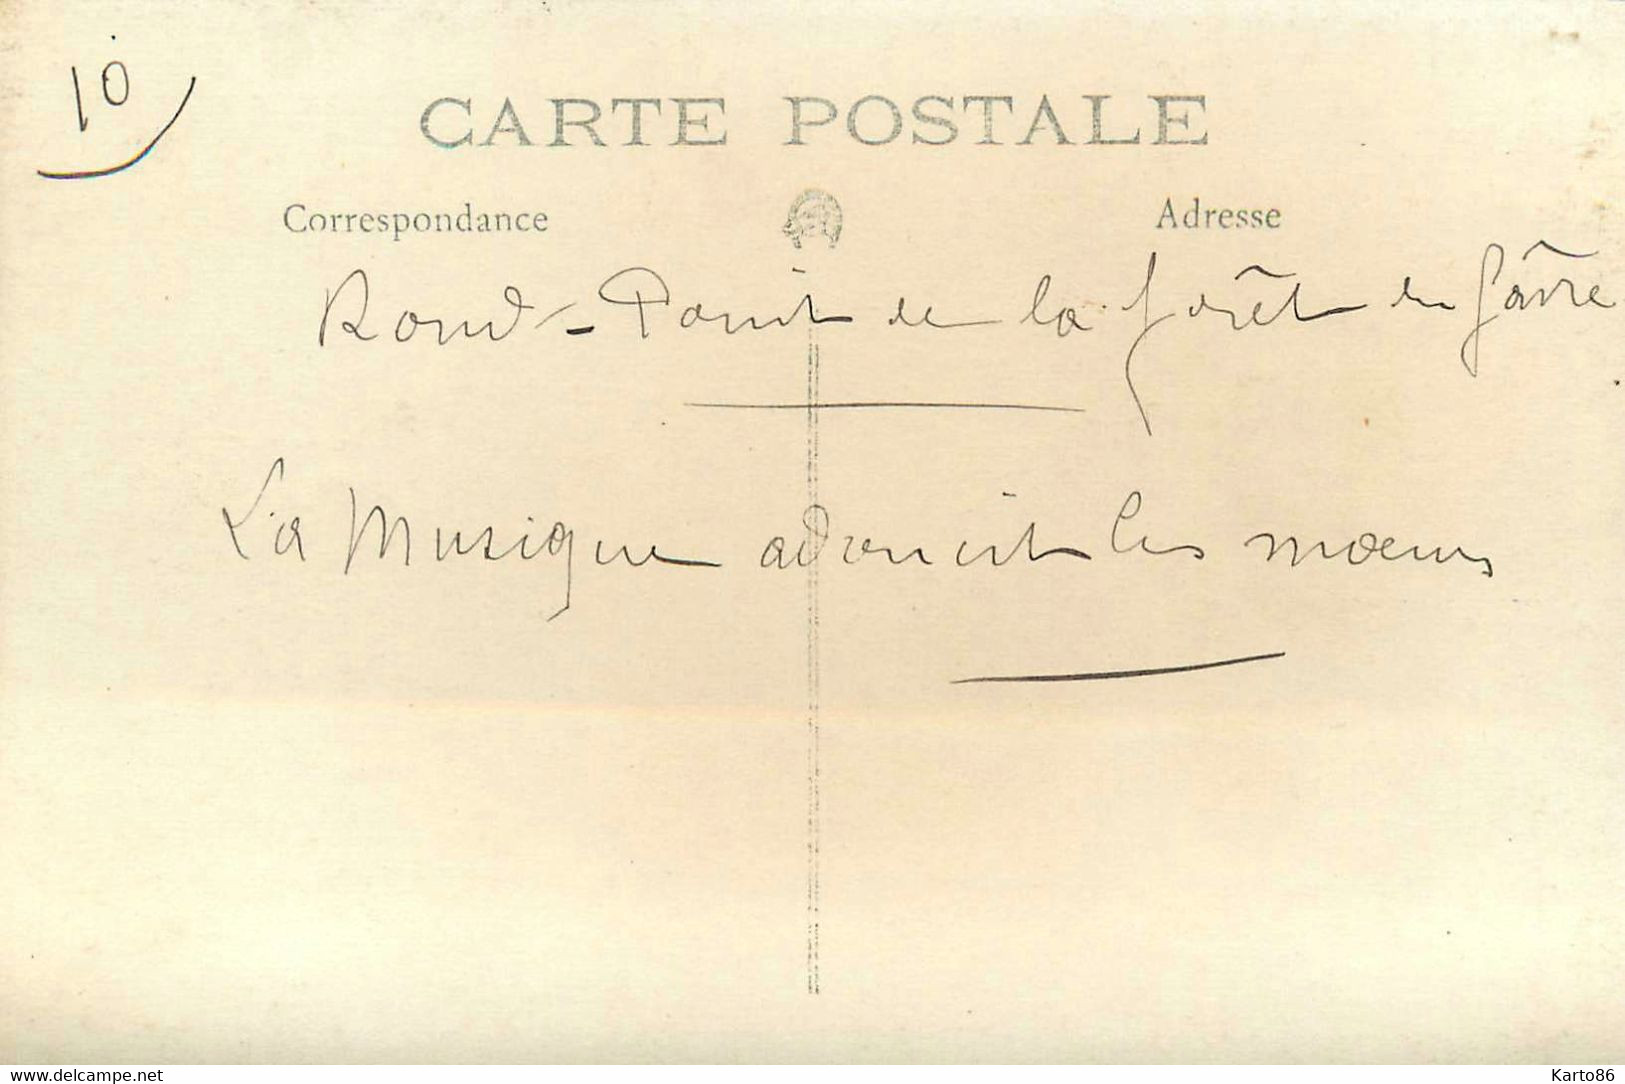 10
CARTE POSTALE
Correspondance
Adresse
Rond-Point de la forêt du Gâvre
La Musique adoucit les mœurs
www.delcampe.net
Karto86